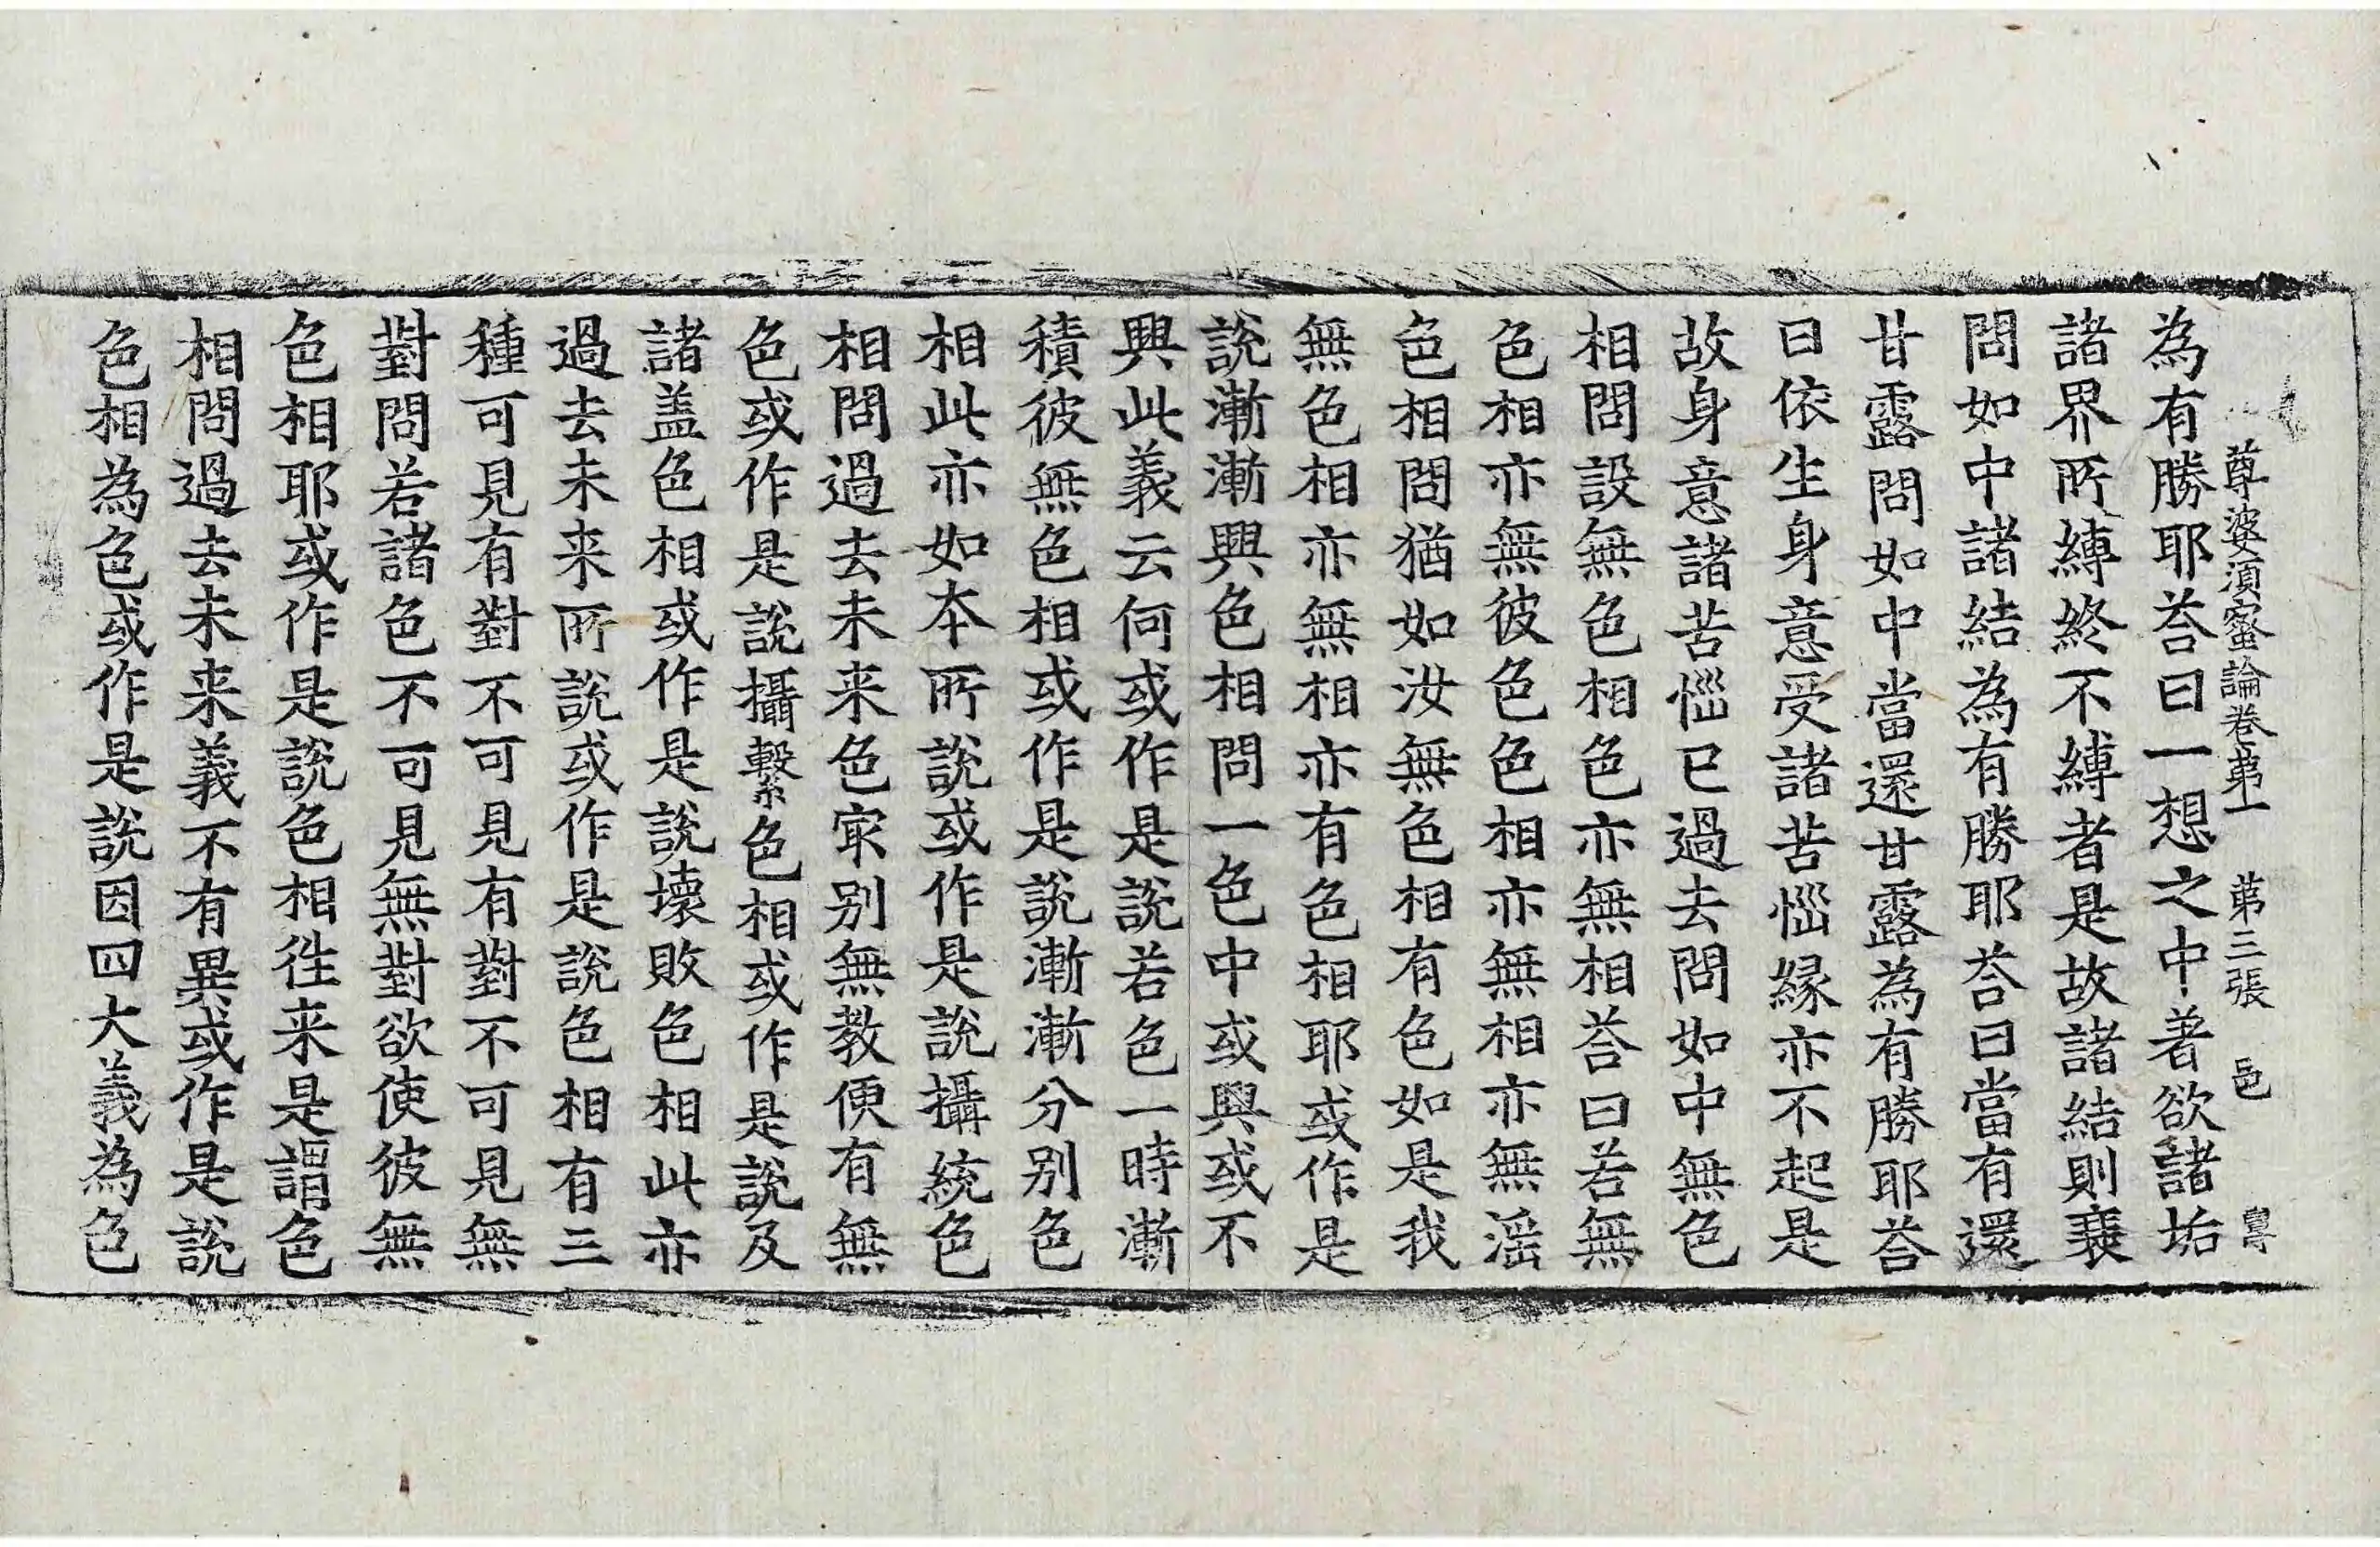 尊婆須蜜論卷苐一 苐三張 邑
為有勝耶荅曰一想之中著欲諸垢
諸界所縛終不縛者是故諸結則衰
問如中諸結為有勝耶荅曰當有還
甘露問如中當還甘露為有勝耶荅
曰依生身意受諸苦惱縁亦不起是
故身意諸苦惱已過去問如中無色
相問設無色相色亦無相荅曰若無
色相亦無彼色色相亦無相亦無滛
色相問猶如汝無色相有色如是我
無色相亦無相亦有色相耶或作是
說漸漸興色相問一色中或興或不
興此義云何或作是說若色一時漸
積彼無色相或作是說漸漸分別色
相此亦如本所說或作是說攝統色
相問過去未来色㝡別無教便有無
色或作是說攝繫色相或作是說及
諸盖色相或作是說壞敗色相此亦
過去未来所說或作是說色相有三
種可見有對不可見有對不可見無
對問若諸色不可見無對欲使彼無
色相耶或作是說色相徃来是謂色
相問過去未来義不有異或作是說
色相為色或作是說因四大義為色